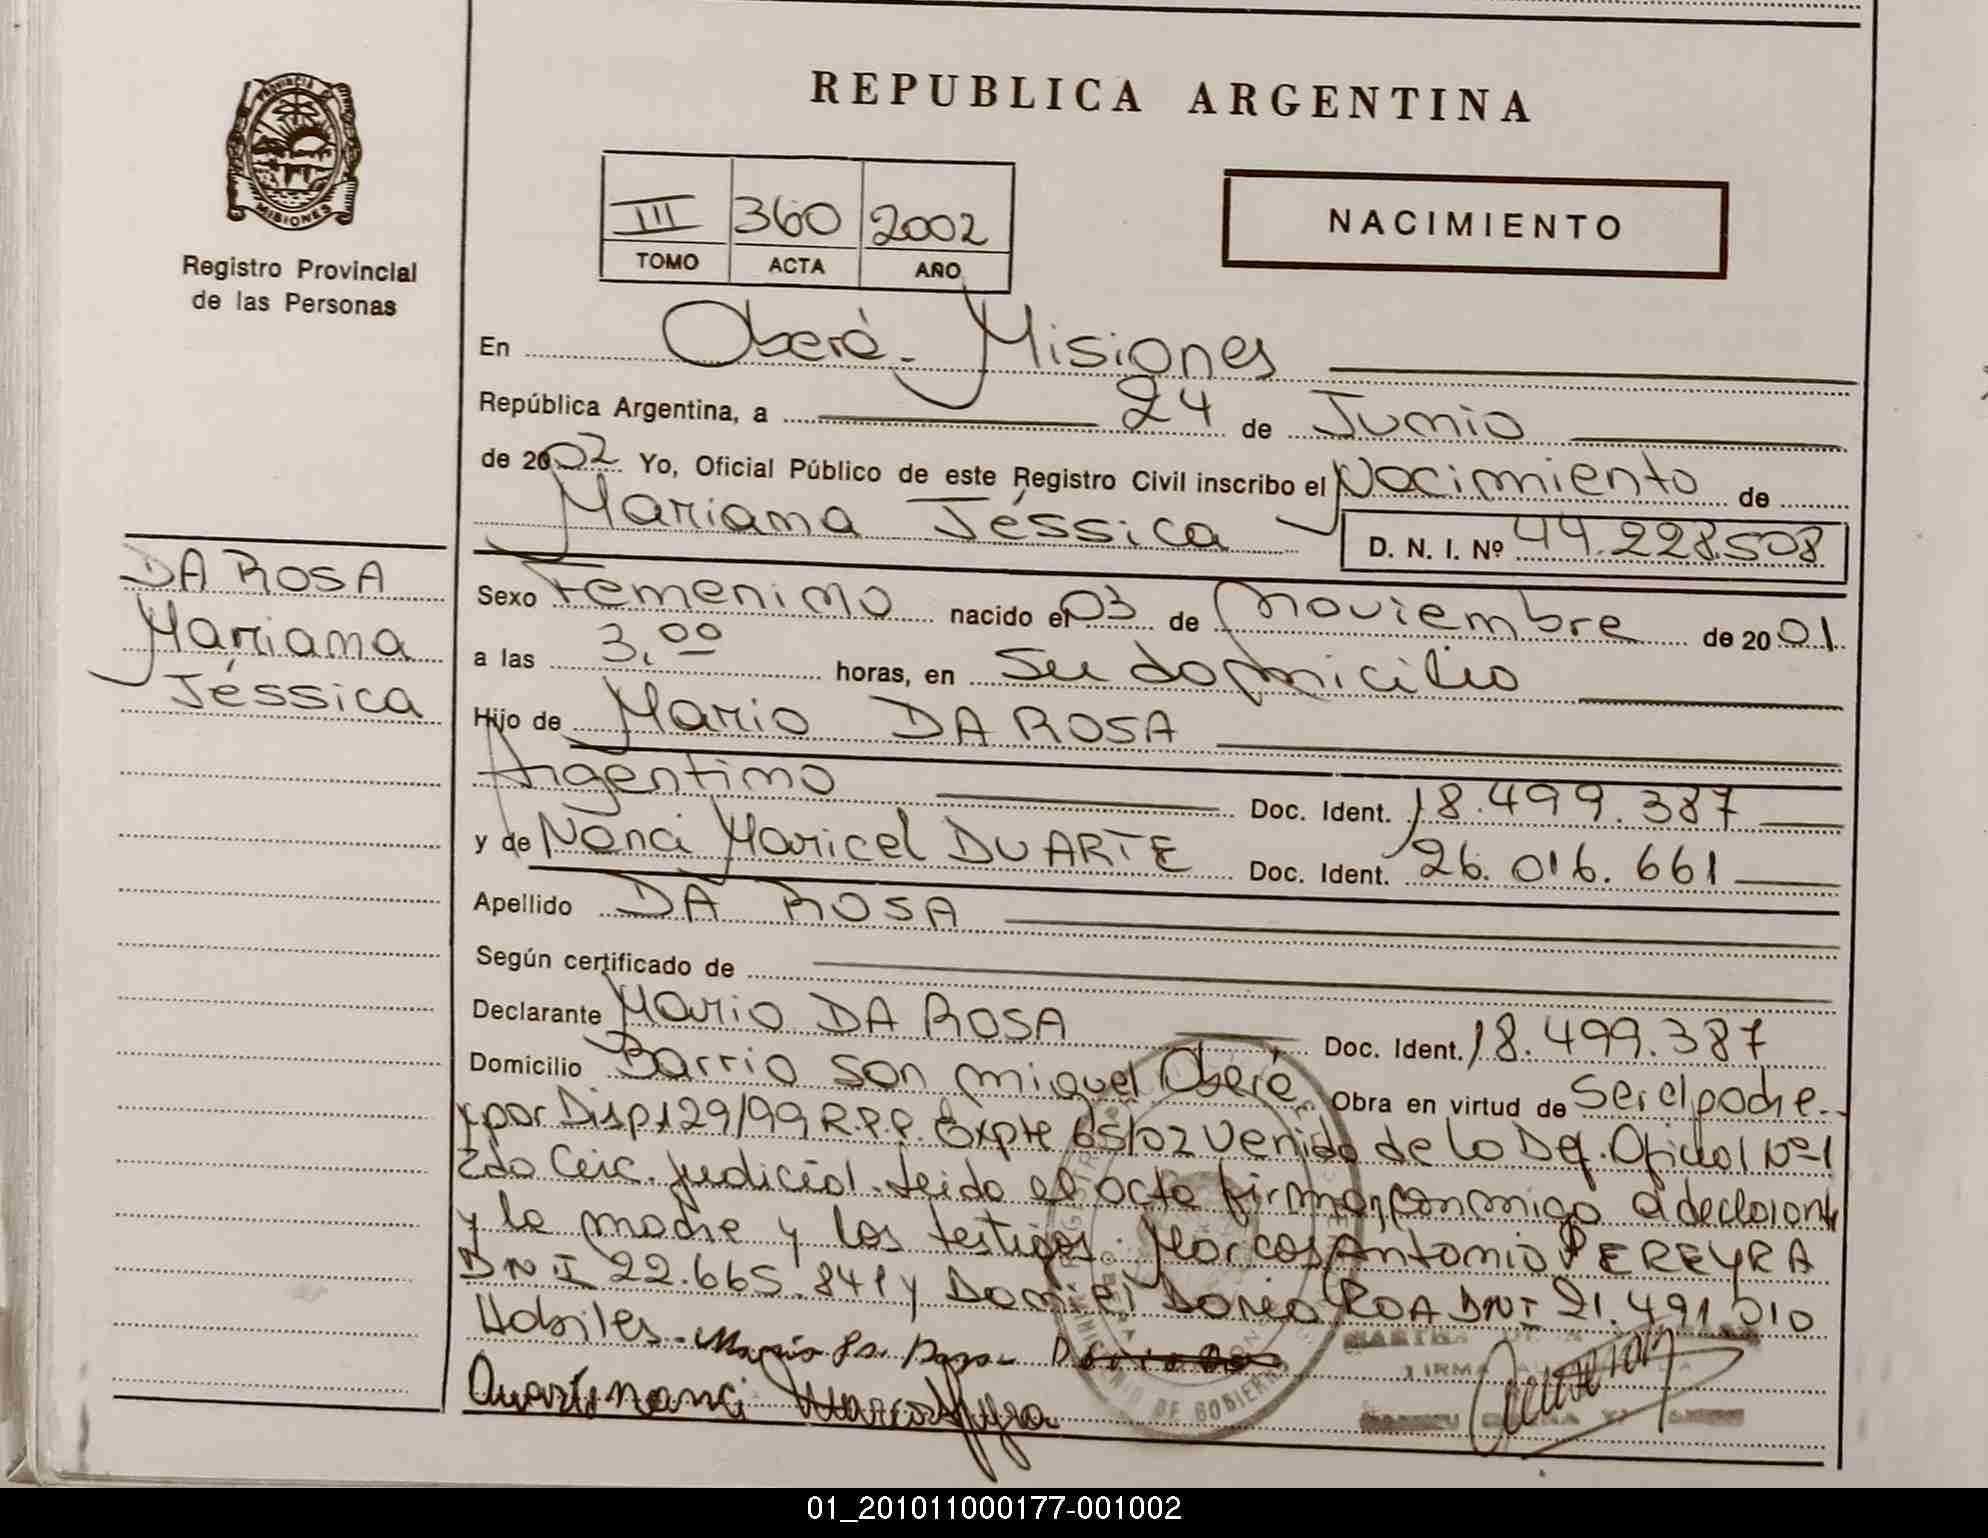 REPUBLICA ARGENTINA
PROVINCIA DE
MISIONES
Registro Provincial
de las Personas
III 360 2002
TOMO ACTA AÑO
NACIMIENTO
En Oberá - Misiones
República Argentina, a 24 de Junio
de 2002 Yo, Oficial Público de este Registro Civil inscribo el Nacimiento de
Mariana Jéssica D. N. I. Nº 44.228.508
DA ROSA
Mariana
Jéssica
Sexo Femenino nacido el 03 de Noviembre de 2001
a las 3,00 horas, en su domicilio
Hijo de Mario DA ROSA
Argentino Doc. Ident. 18.499.387
y de Nanci Maricel DUARTE Doc. Ident. 26.016.661
Apellido DA ROSA
Según certificado de
Declarante Mario DA ROSA Doc. Ident. 18.499.387
Domicilio Barrio San Miguel Oberá Obra en virtud de ser el padre
y por Disp. 129/99 R.P.P. Expte 65/02 Venido de la Def. Oficial Nº 1
2da Circ. Judicial. Leido el acta firman conmigo el declarante
y la madre y los testigos: Marcos Antonio PEREYRA
DNI 22.665.841 y Daniel Dario ROA DNI 21.491.010
Habiles.
Duarte nanci
01_201011000177-001002